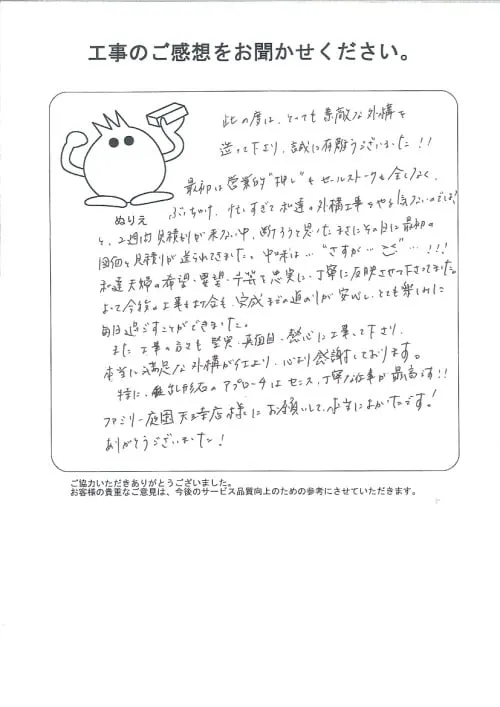 工事のご感想をお聞かせください。
此の度は、とっても素敵な外構を
造って下さり、誠に有難うございました!!
最初は営業的"押し"もセールストークも全くなく、
ぶっちゃけ、忙しすぎて私達の外構工事をやる気ないのでは?
ぬりえ
と、2週間見積りが来ない中、断ろうと思ったまさにその日に最初の
図面と見積りが送られてきました。中味は…"さすが…プロ"…!!!
私達夫婦の希望・要望・予算を忠実に、丁寧に反映させて下さってました。
よって今後の工事も打合も、完成までの道のりが安心し、とても楽しみに
毎日過ごすことができました。
また工事の方々も堅実・真面目・熱心に工事して下さり、
本当に満足な外構が仕上り、心より感謝しております。
特に、乱形石のアプローチはセンス、丁寧な仕事が最高です!!
ファミリー庭園天王寺店様にお願いして、本当によかったです!
ありがとうございました!
ご協力いただきありがとうございました。
お客様の貴重なご意見は、今後のサービス品質向上のための参考にさせていただきます。